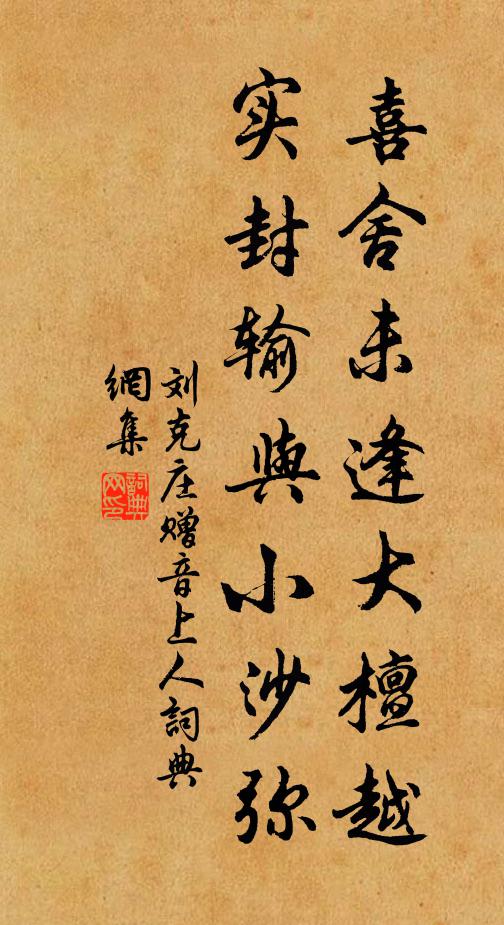 喜舍未逢大檀越
实封输與小沙弥
刘克庄赠音上人詞典
網集
詞典网印